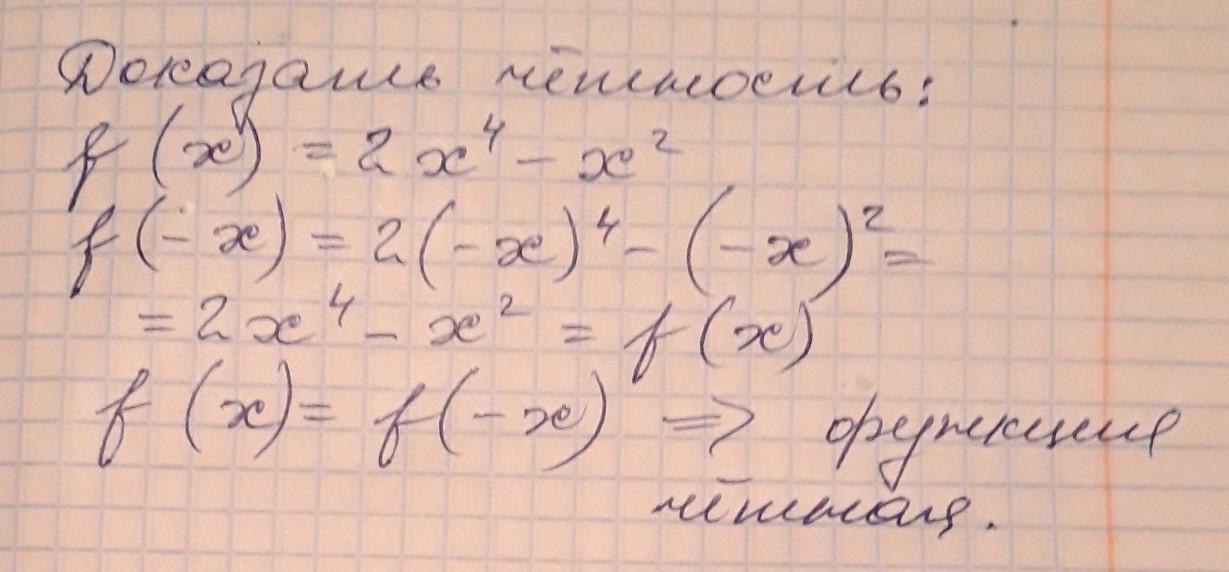 Доказать чётность:
f(x) = 2x⁴ - x²
f(-x) = 2(-x)⁴ - (-x)² =
= 2x⁴ - x² = f(x)
f(x) = f(-x) => функция
чётная.